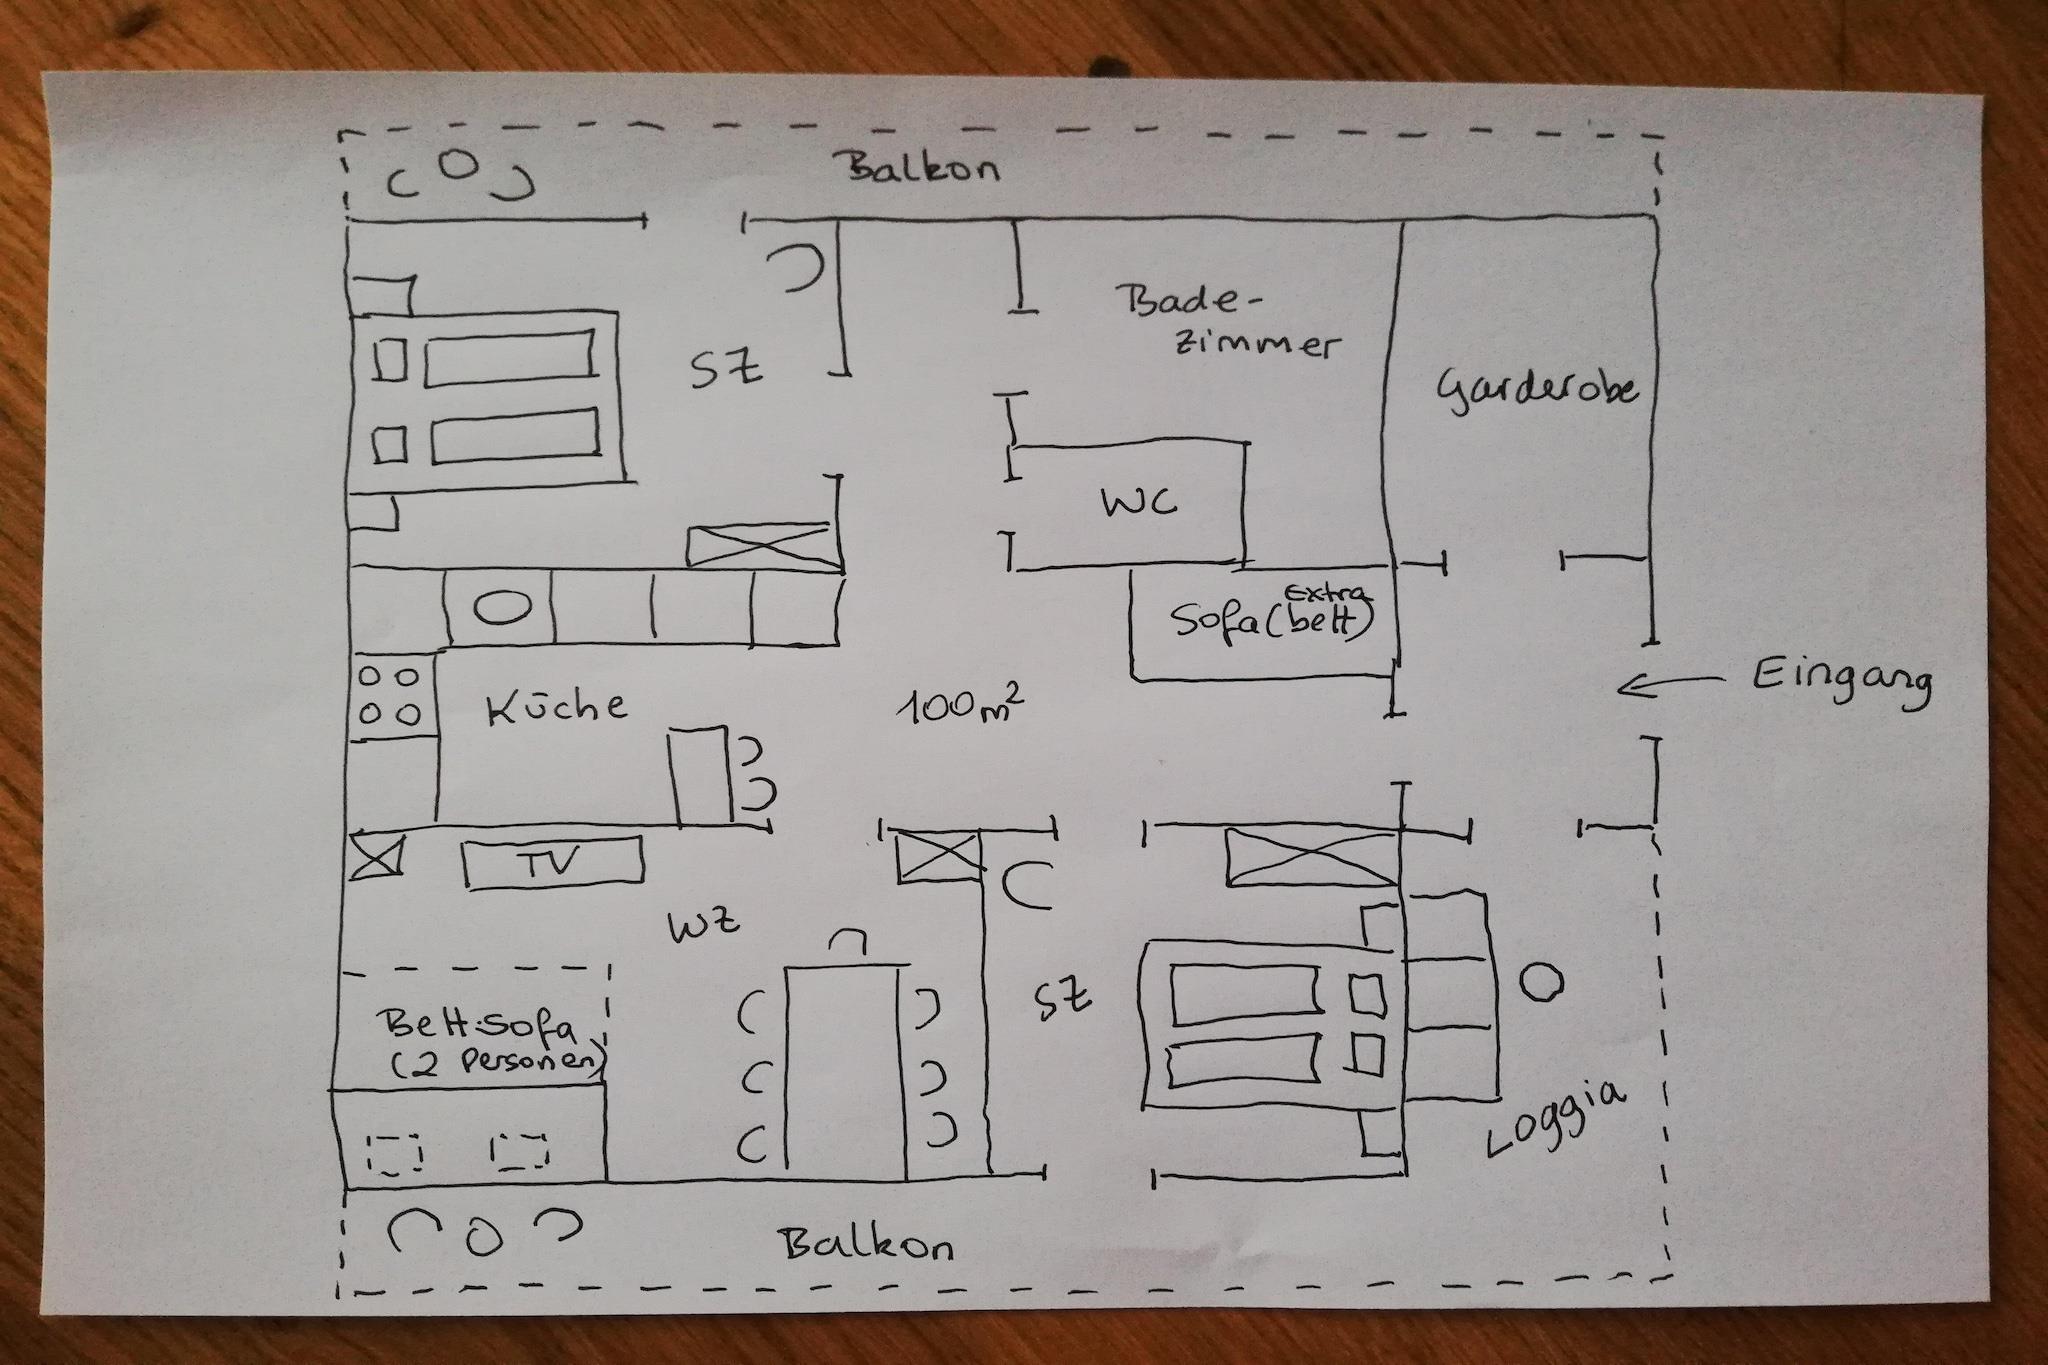 Balkon
Bade-
zimmer
SZ
Garderobe
WC
Extra
Sofa(bett)
Küche
100m²
Eingang
TV
WZ
SZ
Bett-Sofa
(2 Personen)
Loggia
Balkon